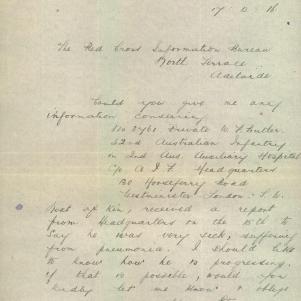 The Red Cross Information Bureau
North Terrace
Adelaide
Could you give me any
information concerning
Private W F Butler
52nd Australian Infantry
or 2nd Aus. Auxiliary Hospital
C/o A.I.F. Headquarters
130 Horseferry Road
Westminster London. S.W.
Next of Kin, received a report
from Headquarters on the to
say he was very sick, suffering
from pneumonia. I should like
to know how he is progressing.
if that is possible, would you
kindly let me know & oblige